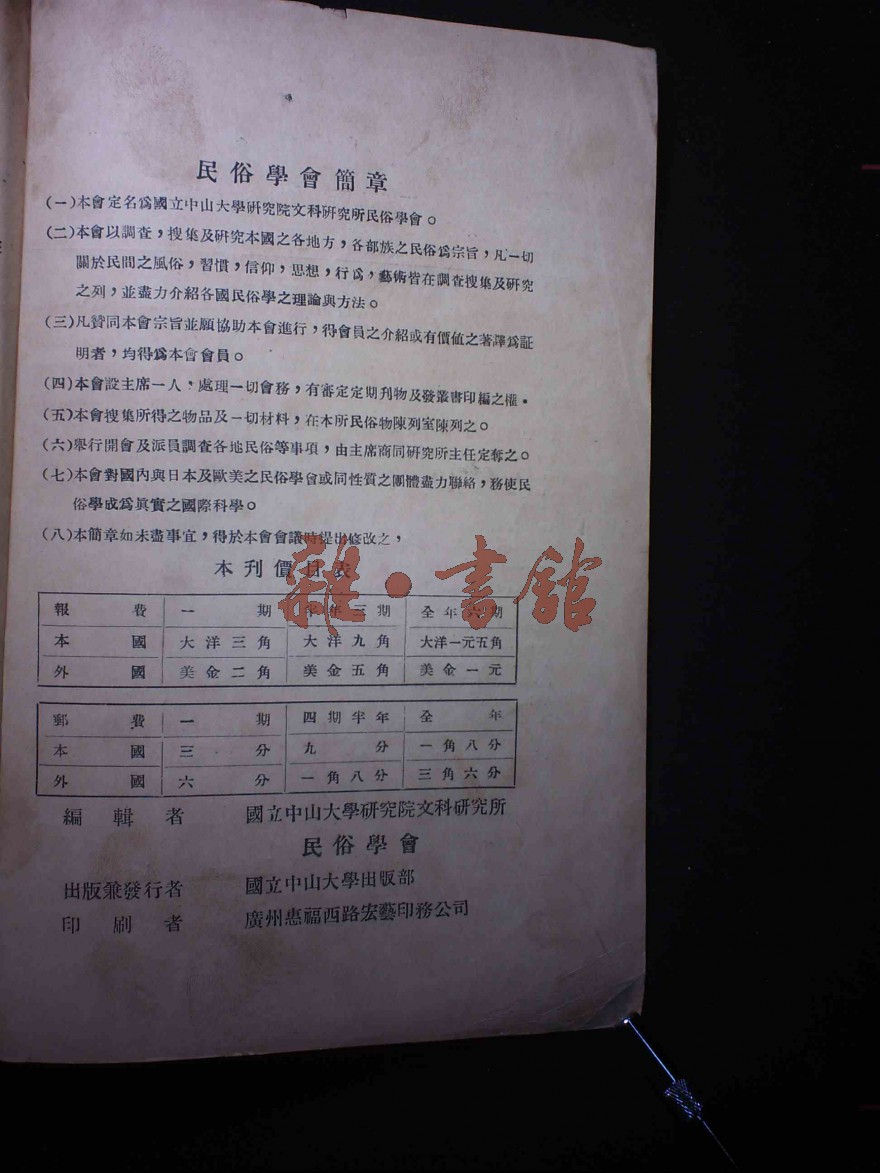 民俗學會簡章
(一)本會定名爲國立中山大學研究院文科研究所民俗學會。
(二)本會以調查，搜集及研究本國之各地方，各部族之民俗爲宗旨，凡一切
關於民間之風俗，習慣，信仰，思想，行爲，藝術皆在調查搜集及研究
之列，並盡力介紹各國民俗學之理論與方法。
(三)凡贊同本會宗旨並願協助本會進行，得會員之介紹或有價值之著譯爲証
明者，均得爲本會會員。
(四)本會設主席一人，處理一切會務，有審定定期刊物及發叢書印編之權．
(五)本會搜集所得之物品及一切材料，在本所民俗物陳列室陳列之。
(六)舉行開會及派員調查各地民俗等事項，由主席商同研究所主任定奪之。
(七)本會對國內與日本及歐美之民俗學會或同性質之團體盡力聯絡，務使民
俗學成爲眞實之國際科學。
(八)本簡章如未盡事宜，得於本會會議時提出修改之，
本刋價目表
報費 一期 半年三期 全年六期
本國 大洋三角 大洋九角 大洋一元五角
外國 美金二角 美金五角 美金一元
郵費 一期 四期半年 全年
本國 三分 九分 一角八分
外國 六分 一角八分 三角六分
編輯者 國立中山大學研究院文科研究所
民俗學會
出版兼發行者 國立中山大學出版部
印刷者 廣州惠福西路宏藝印務公司
雜·書館